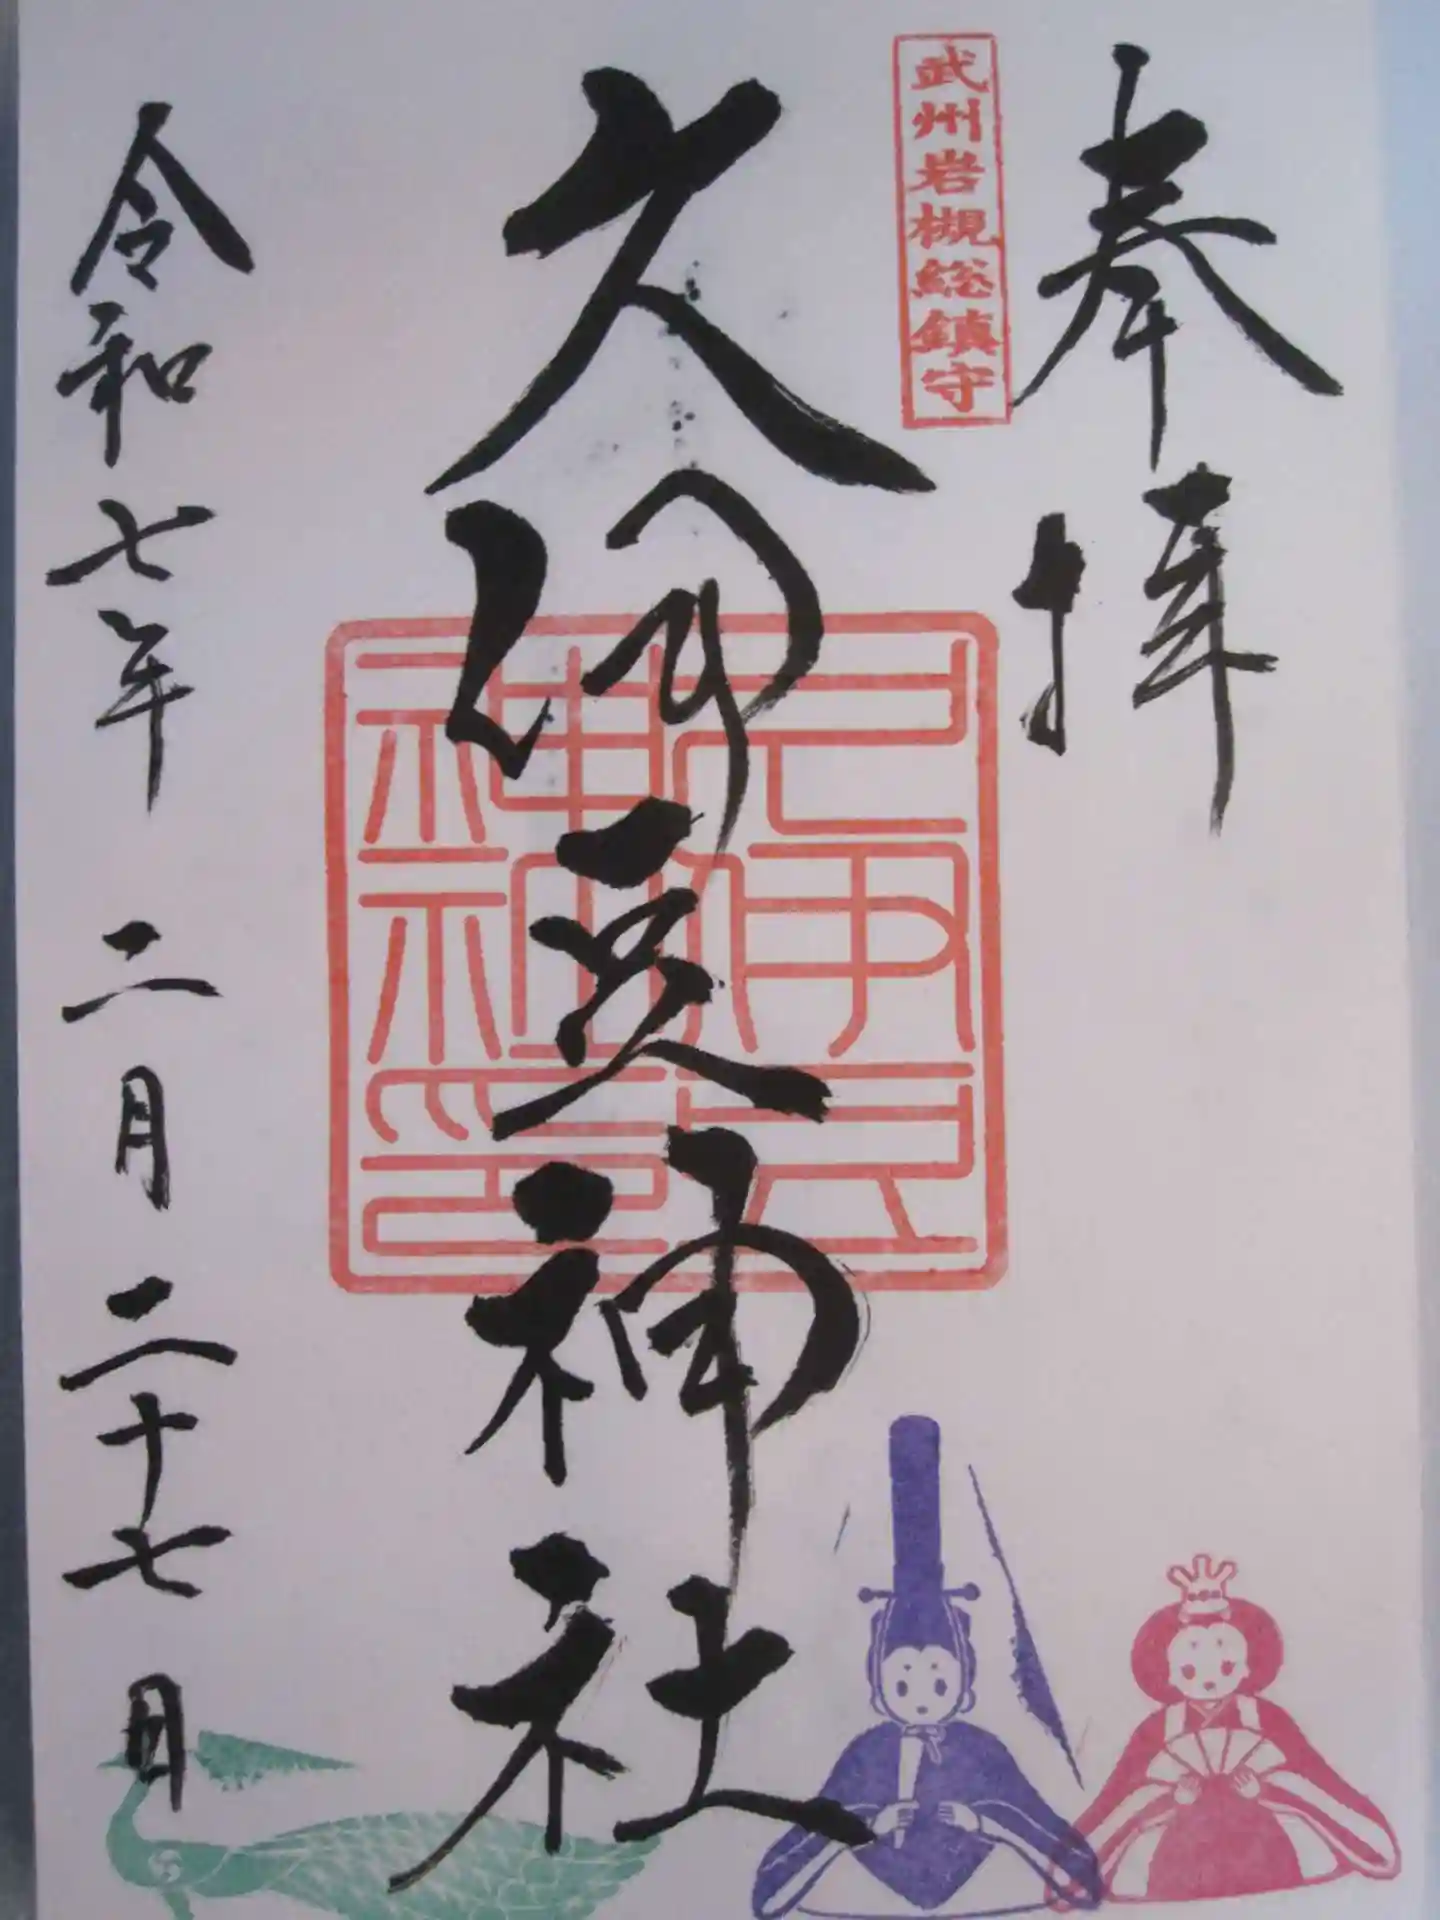 奉拝
武州岩槻総鎮守
久伊豆神社
久伊豆神社印
令和七年二月二十七日